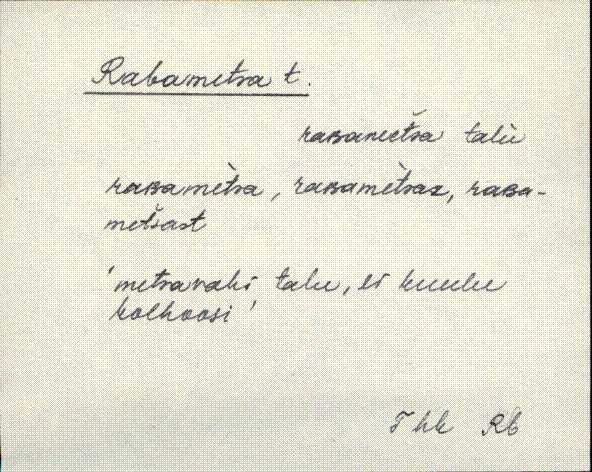 Rabametsa t.
raʙametsa talu
raʙamètsa, raʙamètsaz, raʙa-
metsast
'metsavahi talu, ei kuulu
kolhoosi'
Rb